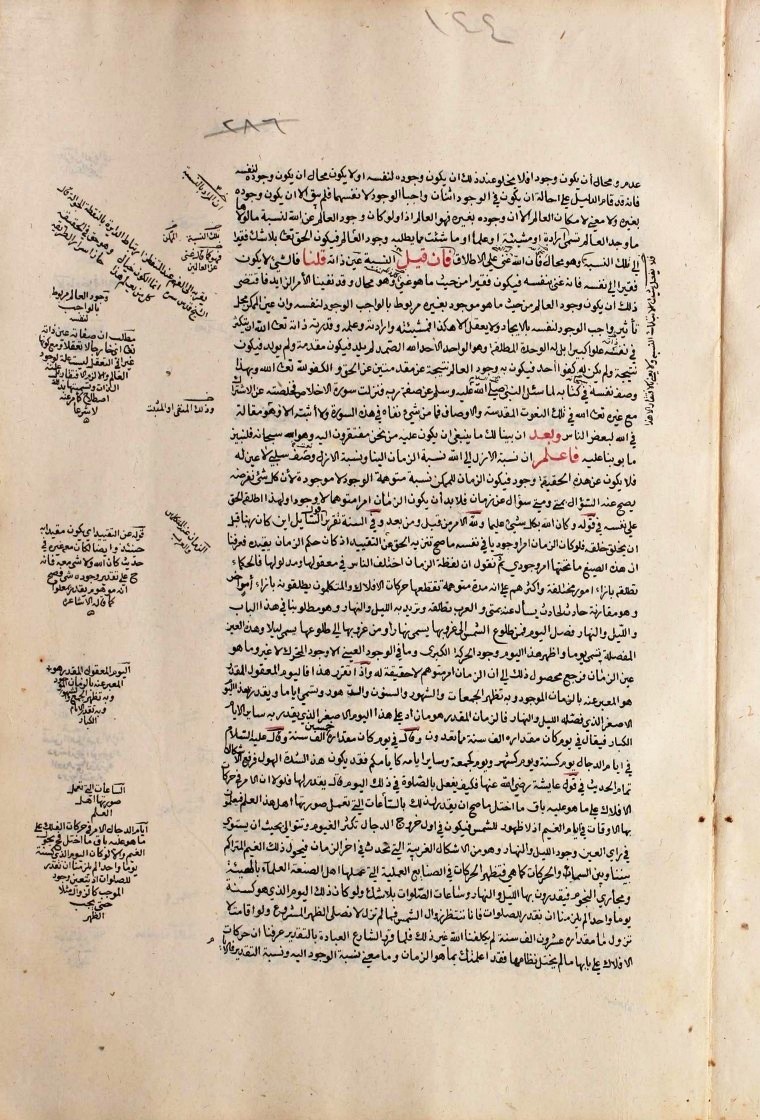 ١٤٤
٢٨٦
عدم ومحال أن يكون وجودا فلا يخلو عند ذلك ان يكون وجوده لنفسه او لا يكون محال ان يكون وجوده لنفسه
فانه قد قام الدليل على احالة ان يكون فى الوجود اثنان واجبا الوجود لانفسهما فلم يبق الا ان يكون وجوده
بغيره ولا معنى لامكان العالم الا ان وجوده بغيره فهو العالم اذا ولو كان وجود العالم عن الله لنسبة ما لولاها
ما وجد العالم تسمى ارادة او مشيئة او علما او ما شئت مما يطلبه وجود العالم فيكون الحق تعالى بلا شك فقيرا
الى تلك النسبة وهو محال فان الله غنى على الاطلاق فان قيل النسبة عين ذاته قلنا فالشئ لا يكون
فقيرا الى نفسه فانه غنى بنفسه فيكون فقيرا من حيث ما هو غنى وهو محال وقد نفينا الأمر الزائد فاقتضى
ذلك ان يكون وجود العالم من حيث ما هو موجود بغيره مربوط بالواجب الوجود لنفسه وان عين الممكن محل
تأثير واجب الوجود لنفسه بالايجاد ولا يعقل الا هكذا فمشيئته وارادته وعلمه وقدرته ذاته تعالى الله ان يتكثر
فى نفسه علوا كبيرا بل له الوحدة المطلقة وهو الواحد الاحد الله الصمد لم يلد فيكون مقدمة ولم يولد فيكون
نتيجة ولم يكن له كفوا أحد فيكون به وجود العالم نتيجة عن مقدمتين عن الحق والكفو تعالى الله وبهذا
وصف نفسه فى كتابه لما سئل النبى صلى الله عليه وسلم عن صفة ربه فنزلت سورة الاخلاص تخلصت عن الاشتراك
مع غيره تعالى الله فى تلك النعوت المقدسة والاوصاف فما من شئ نفاه فى هذه السورة ولا أثبته الا وهو مقالة
فى الله لبعض الناس وبعد ان بينا لك ما ينبغى ان يكون عليه من نحن مفتقرون اليه وهو الله سبحانه فلنبين
ما بوبنا عليه فاعلم ان نسبة الأزل الى الله نسبة الزمان الينا ونسبة الازل وصف سلبى لا عين له
فلا يكون عن هذه الحقيقة وجود فيكون الزمان للممكن نسبة متوهمة الوجود لا موجودة لأن كل شئ تفرضه
يصح عنه السؤال بمتى ومتى سؤال عن زمان فلا بد أن يكون الزمان امرا متوهما لا وجود ولهذا اطلقه الحق
على نفسه فى قوله وكان الله بكل شئ عليما ولله الأمر من قبل ومن بعد وفى السنة تقرير قول السائل اين كان ربنا قبل
ان يخلق خلقه فلو كان الزمان امرا وجوديا فى نفسه ما صح تنزيه الحق عن التقييد اذ كان حكم الزمان يقيده فعرفنا
ان هذه الصيغ ما تحتها امر وجودى ثم نقول ان لفظة الزمان اختلف الناس فى معقولها ومدلولها فالحكماء
تطلقه بازاء امور مختلفة وأكثرهم على انه مدة متوهمة تقطعها حركات الافلاك والمتكلمون يطلقونه بازاء أمر آخر
وهو مقارنة حادث لحادث يسأل عنه بمتى والعرب تطلقه وتريد به الليل والنهار وهو مطلوبنا فى هذا الباب
والليل والنهار فصلا اليوم فمن طلوع الشمس الى غروبها يسمى نهارا ومن غروبها الى طلوعها يسمى ليلا وهذه العين
المفصلة تسمى يوما واظهر هذا اليوم وجود الحركة الكبرى وما فى الوجود العينى الا وجود المتحرك لا غير وما هو
عين الزمان فرجع محصول ذلك الى ان الزمان امر متوهم لا حقيقة له واذا تقرر هذا فاليوم المعقول المقدر
هو المعبر عنه بالزمان الموجود وبه تظهر الجمعات والشهور والسنون والدهور وتسمى اياما وتقدر بهذا اليوم
الاصغر الذى فصله الليل والنهار فالزمان المقدر هو ما زاد على هذا اليوم الاصغر الذى يقدر به سائر الأيام
الكبار فيقال فى يوم كان مقداره الف سنة مما تعدون وقال فى يوم كان مقداره خمسين الف سنة وقال عليه السلام
فى ايام الدجال يوم كسنة ويوم كشهر ويوم كجمعة وسائر ايامه كايامكم فقد يكون هذا لشدة الهول فرفع الاشكال
تمام الحديث فى قول عايشة رضى الله عنها فكيف يفعل بالصلوة فى ذلك اليوم قال يقدر لها فلولا ان الامر فى حركات
الافلاك على ما هو عليه باق ما اختل ما صح ان يقدر لذلك بالساعات التى يعمل صورتها اهل هذا العلم فيعلمون
بها الاوقات فى ايام الغيم اذ لا ظهور للشمس فيكون فى اول خروج الدجال تكثر الغيوم وتتوالى بحيث ان يستوى
فى رأى العين وجود الليل والنهار وهو من الاشكال الغريبة التى تحدث فى آخر الزمان فيحول ذلك الغيم المتراكم
بيننا وبين السماء والحركات كما هى فتظهر الحركات فى الصنايع العملية التى عملها اهل الصنعة العلماء بالهيئة
ومجارى النجوم فيقدرون بها الليل والنهار وساعات الصلوات بلا شك ولو كان ذلك اليوم الذى هو كسنة
يوما واحدا لم يلزمنا ان نقدر للصلوات فانا ننتظر زوال الشمس فما لم تزل لا نصلى الظهر المشروع ولو اقامت لا
تزول ما مقداره عشرون الف سنة لم يكلفنا الله غير ذلك فلما قرر الشارع العبادة بالتقدير عرفنا ان حركات
الافلاك على بابها ما لم يختل نظامها فقد اعلمتك بما هو الزمان وما معنى نسبة الوجود اليه ونسبة التقدير فالايام
تلك النسبة
وجود العالم مربوط
بالواجب
لنفسه
مطلب ان صفاته عين ذاته
وذلك المنتفى او المثبت
الزمان عند المتكلمين
والعرب
اليوم المعقول المقدر هو
المعبر عنه بالزمان الموجود
وبه تظهر الجمع
وبه تقدر الأيام
الكبار
الساعات التى تعمل
صورتها اهل
العلم
ايام الدجال الامر فى حركات الفلك على
ما هو عليه باق ما اختل فى يكون
الغيم ولو كان اليوم الذى كسنة
يوما واحدا لم يلزمنا ان نقدر
للصلوات